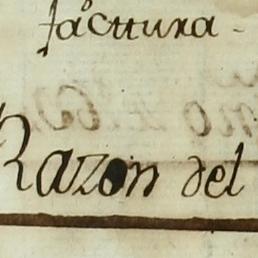 facttura -
Razon del